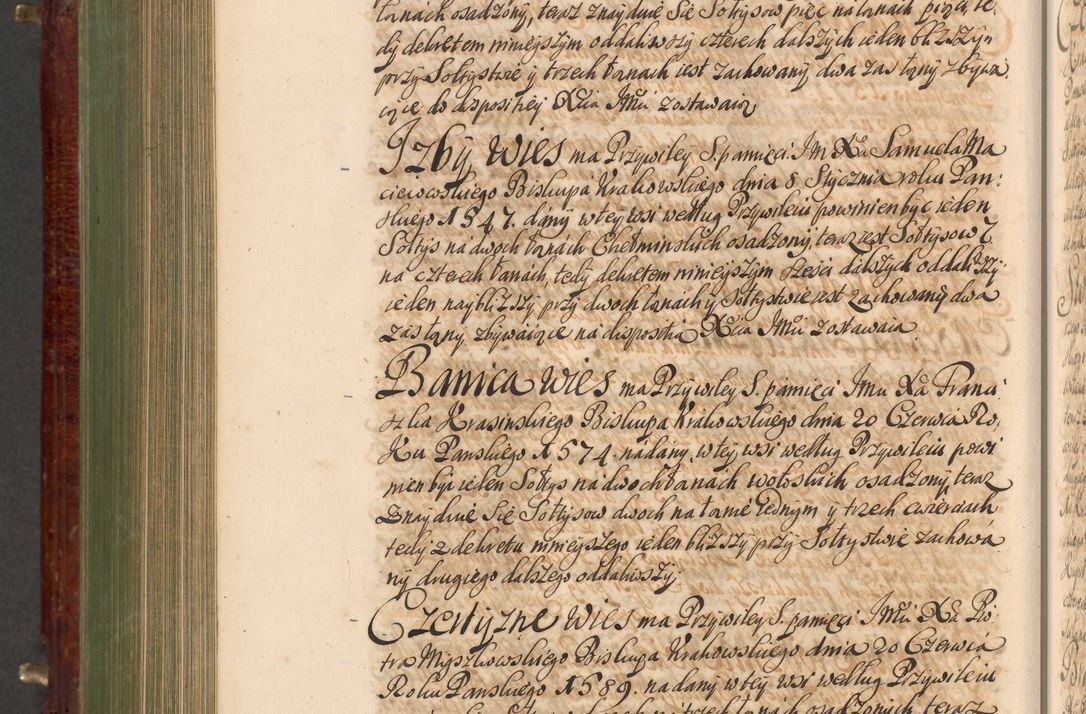 łanach osadzony, teraz znayduie Się Sołtysow pięc na łanach pięci, te
dy dekretem ninieyszym oddaliwszy czterech dalszych ieden bliższy
przy Sołtystwie y trzech łanach iest zachowany, dwa zas łany zbywa
iące do dispozitiey Xcia Jmci zostawaią
Izby Wies ma Przywiley S. pamięci Jm Xa Samuela Ma
cieiowskiego Biskupa Krakowskiego dnia 8 Stycznia roku Pan:
skiego 1547. dany w tey wsi według Przywileiu powinien być ieden
Sołtys na dwoch łanach Chełminskich osadzony, teraz iest Sołtysow 7
na czterech łanach, tedy dekretem ninieyszym sześci dalszych oddaliwszy
ieden naybliższy przy dwoch łanach y Sołtystwie iest zachowany dwa
zas łany zbywaiące na dispositią Xcia Jmci zostawaią
Banica Wies ma Przywiley S. pamięci Jmci Xa Franci
szka Krasinskiego Biskupa Krakowskiego dnia 20 Czerwca Ro,
ku Panskiego 1574. nadany, w tey wsi według Przywileiu powi
nien być ieden Sołtys na dwoch łanach wołoskich osadzony, teraz
Znayduie Się Sołtysow dwoch na łanie iednym y trzech cwierciach
tedy z dekretu ninieyszego ieden bliższy przy Sołtystwie zachowa
ny drugiego dalszego oddaliwszy.
Czertyzne Wies ma Przywiley S. pamięci Jmci Xa Pio
tra Myszkowskiego Biskupa Krakowskiego dnia 20 Czerwca
Roku Panskiego 1589. nadany w tey wsi według Przywileiu
łanach osadzonych teraz